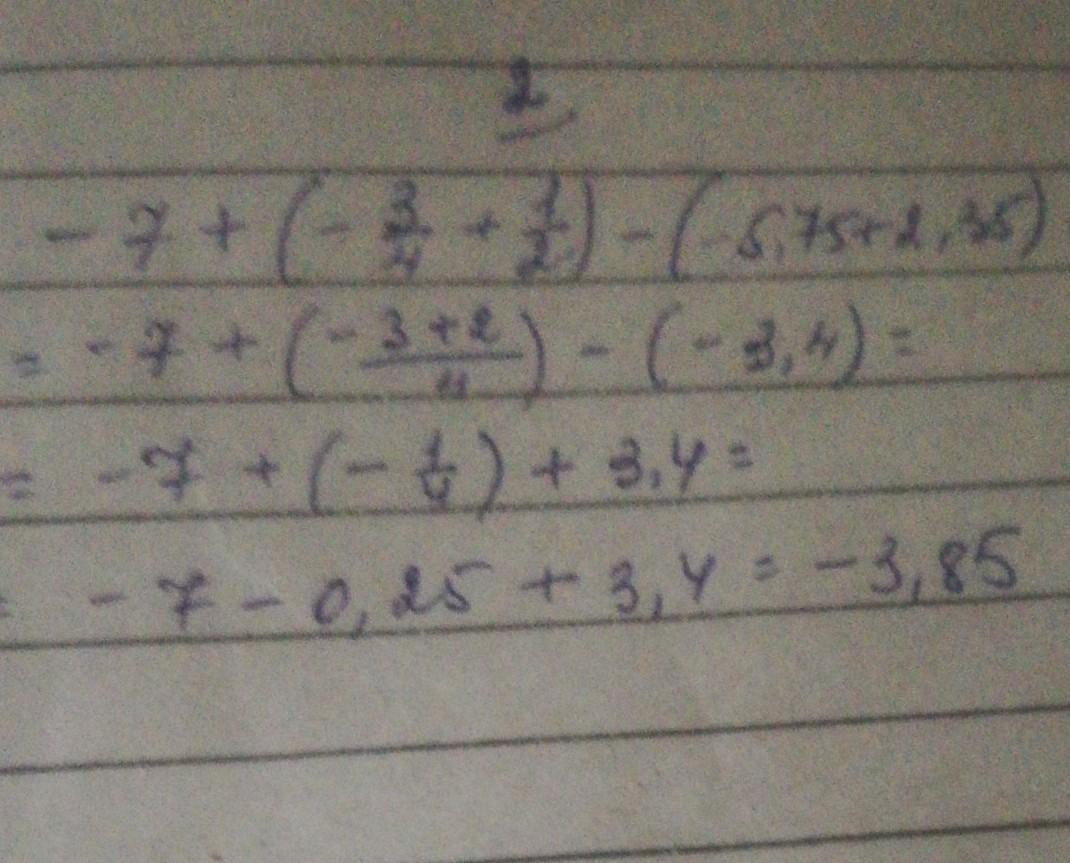 2
- 7 + (- 3/4 + 1/2) - (-5,75+2,35)
= - 7 + (- 3+2/4) - (- 3,4) =
= - 7 + (- 1/4) + 3,4 =
= - 7 - 0,25 + 3,4 = - 3,85